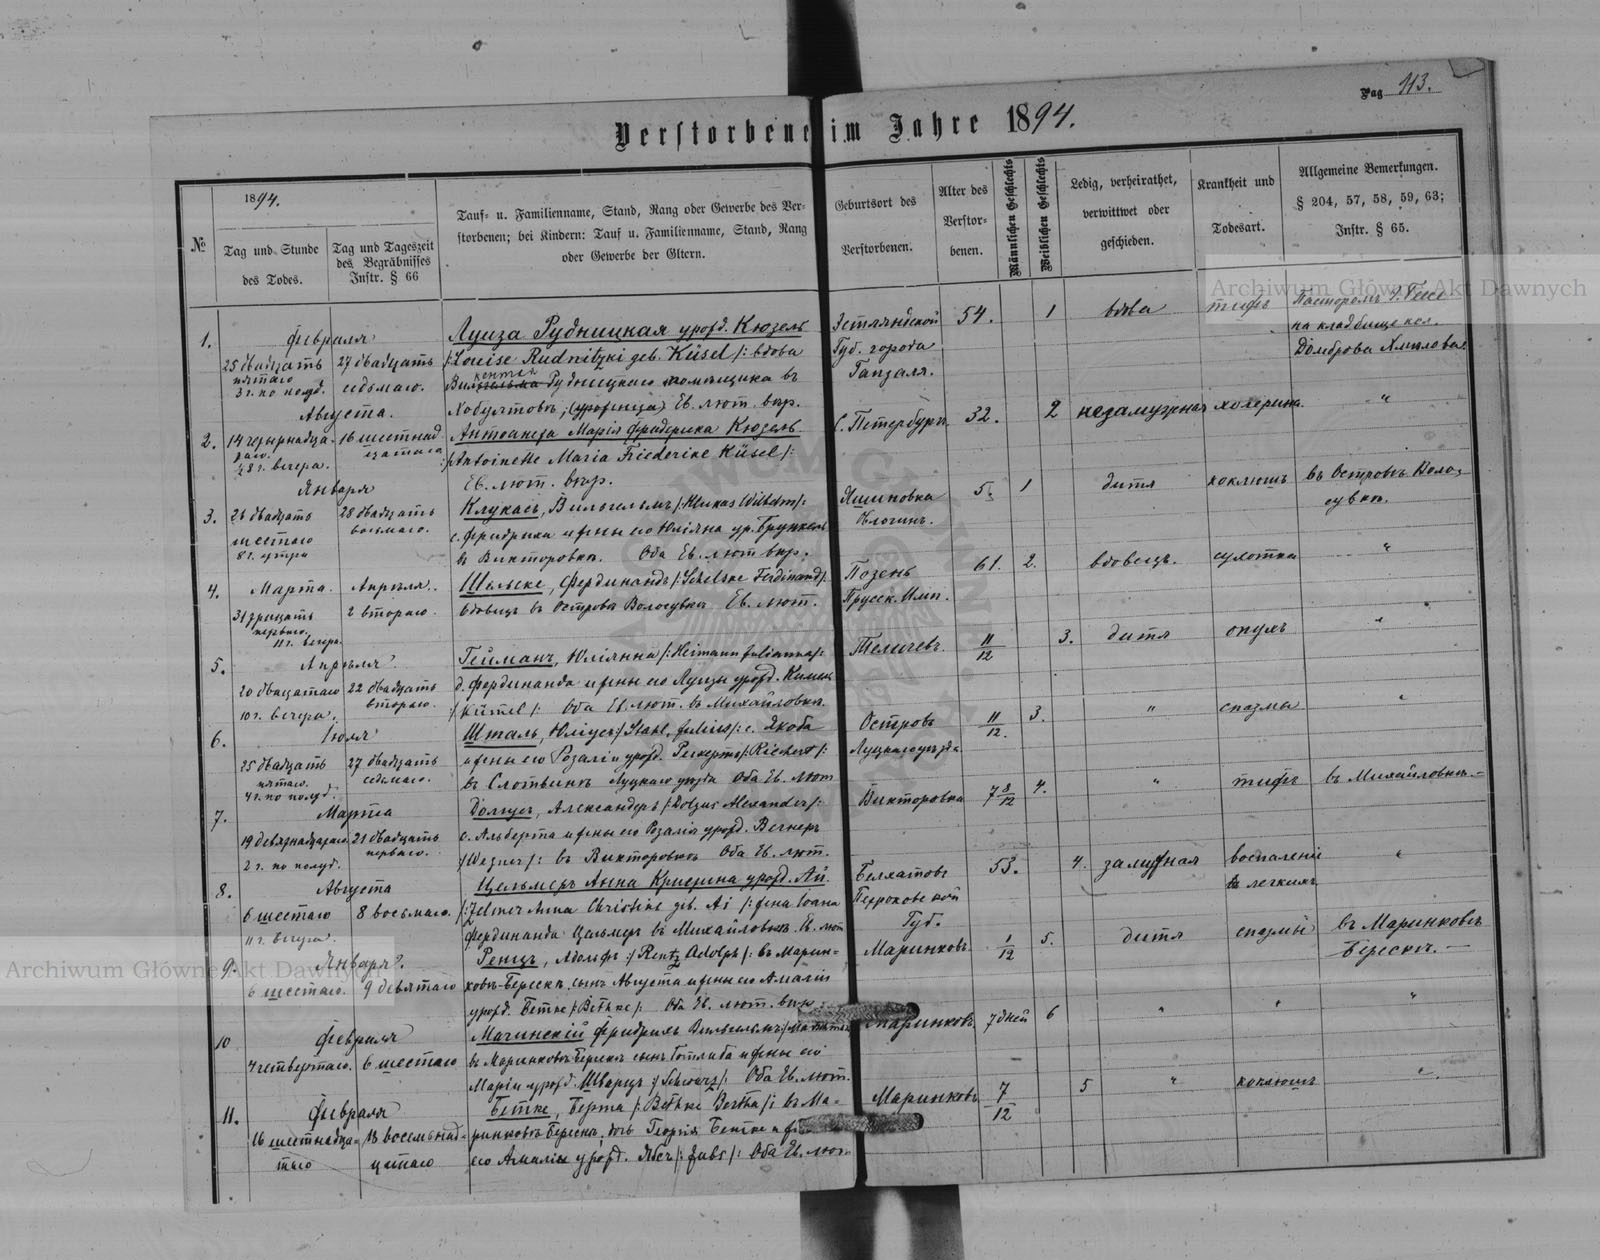 Pag 113.
Verstorbene im Jahre 1894.
№
1894.
Tag und Stunde
des Todes.
Tag und Tageszeit
des Begräbnisses
Instr. § 66
Tauf- u. Familienname, Stand, Rang oder Gewerbe des Ver-
storbenen; bei Kindern: Tauf u. Familienname, Stand, Rang
oder Gewerbe der Eltern.
Geburtsort des
Verstorbenen.
Alter des
Verstor-
benen.
Männlichen Geschlechts
Weiblichen Geschlechts
Ledig, verheirathet,
verwittwet oder
geschieden.
Krankheit und
Todesart.
Allgemeine Bemerkungen.
§ 204, 57, 58, 59, 63;
Instr. § 65.
Archiwum Główne Akt Dawnych
1.
февраля
25 двадцать
пятаго
3 г. по полуд.
27 двадцать
седьмаго.
Луиза Рудницкая урожд. Кюзель
/:Louise Rudnitzki geb. Küsel/: вдова
Рудницкаго помѣщика въ
Ев. лют. вѣр.
Эстляндской
Губ. города
Гапзаля.
54.
1
вдова
тифъ
Пасторомъ
на кладбище кол.
Домброва
2.
Августа.
14 четырнадца-
таго
½8 г. вечера.
16 шестнад
цатаго
Антоанета Марія Фридерика Кюзель
/:Antoinette Maria Friederike Küsel/:
Ев. лют. вѣр.
С. Петербургъ
32.
2
незамужная
холерина.
"
3.
Января
26 двадцать
шестаго
8 г. утра
28 двадцать
восьмаго.
Клукасъ, Вильгельмъ /:Klukas Wilhelm/:
с. Фридриха и жены его Юліяна ур. Брункель
въ Викторовкѣ. Оба Ев. лют вѣр.
Яшиновка
5.
1
дитя
коклюшъ
въ Островѣ Воло-
сувкѣ.
4.
Марта.
31 тридцать
перваго.
11 г. вечера.
Апрѣля.
2 втораго.
Шельске, Фердинандъ /:Schelske Ferdinand/:
вдовецъ въ Островѣ Волосувкѣ Ев. лют.
Позенъ
Прусск. Имп.
61.
2.
вдовецъ.
сухотка
"
5.
Апрѣля
20 двацатаго
10 г. вечера.
22 двадцать
втораго.
Гейманъ, Юліянна /:Heimann Julianna/:
д. Фердинанда и жены его Луизы урожд. Кимель
/:Kümel/: Оба Ев. лют. въ Михайловкѣ.
Теличевъ.
11/12
3.
дитя
опухъ
"
6.
Іюля
25 двадцать
пятаго.
4 г. по полуд.
27 двадцать
седьмаго.
Шталь, Юліусъ /:Stahl, Julius/: с. Якоба
и жены его Розаліи урожд. Рихертъ /:Riehert/:
въ Слотвинѣ Луцкаго уѣзда Оба Ев. лют
Островъ
Луцкаго уѣзда
11/12.
3.
"
спазмы
"
7.
Марта
19 девятнадцатаго
2 г. по полуд.
21 двадцать
перваго.
Долгусъ, Александеръ /:Dolgus Alexander/:
с. Альберта и жены его Розаліи урожд. Вегнеръ
/:Wegner/: въ Викторовкѣ Оба Ев. лют.
Викторовка
7 8/12
4.
"
тифъ
въ Михайловкѣ.–
8.
Августа
6 шестаго
11 г. вечера.
8 восьмаго.
Цельмеръ Анна Кристина урожд. Ай.
/:Zelmer Anna Christine geb. Ai /: жена Іоана
Фердинанда Цельмеръ въ Михайловкѣ Ев. лют
Белхатовъ
Петроковской
Губ.
53.
4.
замужная
воспаленіе
въ легкихъ
"
9.
Января.
6 шестаго.
9 девятаго
Ренцъ, Адольфъ :/Rentz Adolph/: въ Марин-
ковѣ-Берескѣ, сынъ Августа и жены его Амаліи
урожд. Бетке /:Bethke/: Оба Ев. лют. вѣр.
Маринковъ.
1/12
5.
дитя
спазмы
въ Маринковѣ
Берескѣ.–
10
февраля
4 четвертаго.
6 шестаго
Мачинскій Фридрихъ Вильгельмъ
въ Маринковѣ Берескѣ сынъ Готлиба и жены его
Маріи урожд. Шварцъ :/Schwarz/: Оба Ев. лют.
Маринковъ
7 дней
6
"
"
"
11.
февраля
16 шестнадца-
таго
18 восемьнад-
цатаго
Бетке, Берта /:Bethke Bertha/: въ Ма-
ринковѣ Берескѣ, дочь Георгія Бетке и
его Амаліи урожд. Ябсъ /:Jabs/: Оба Ев. лют.
Маринковъ
7/12
5
"
коклюшъ
"
Archiwum Główne Akt Dawnych